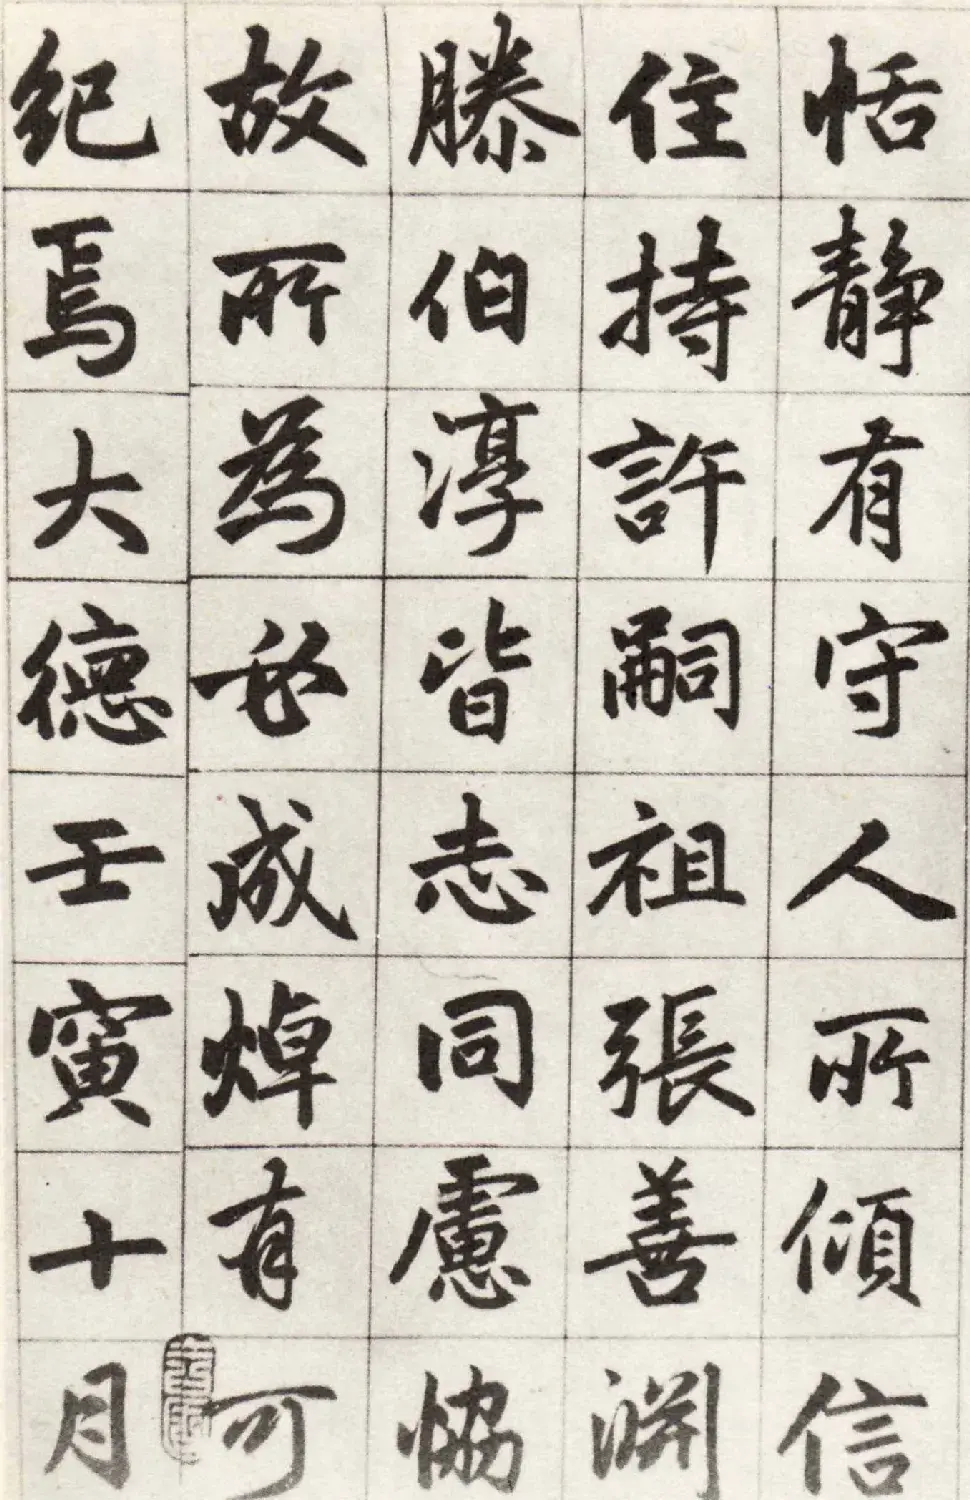 恬静有守人所傾信
住持許嗣祖張善淵
滕伯淳皆志同慮協
故所為必成焯有可
紀焉大德壬寅十月